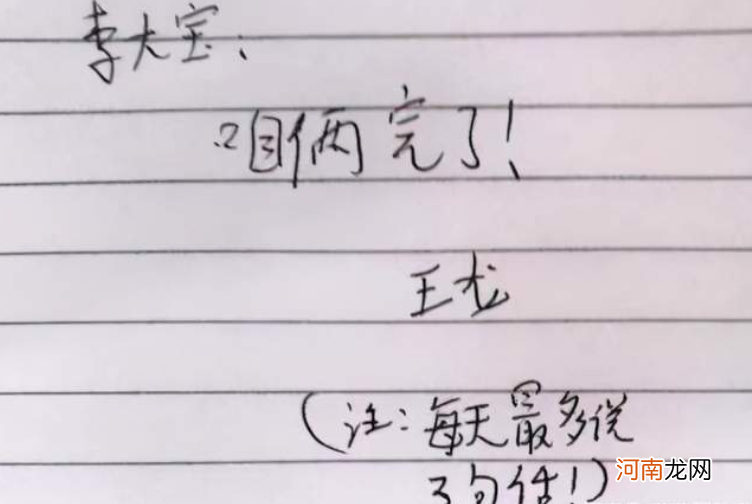 李大宝：
咱俩完了！
王龙
（注：每天最多说
3句话！）
河南龙网